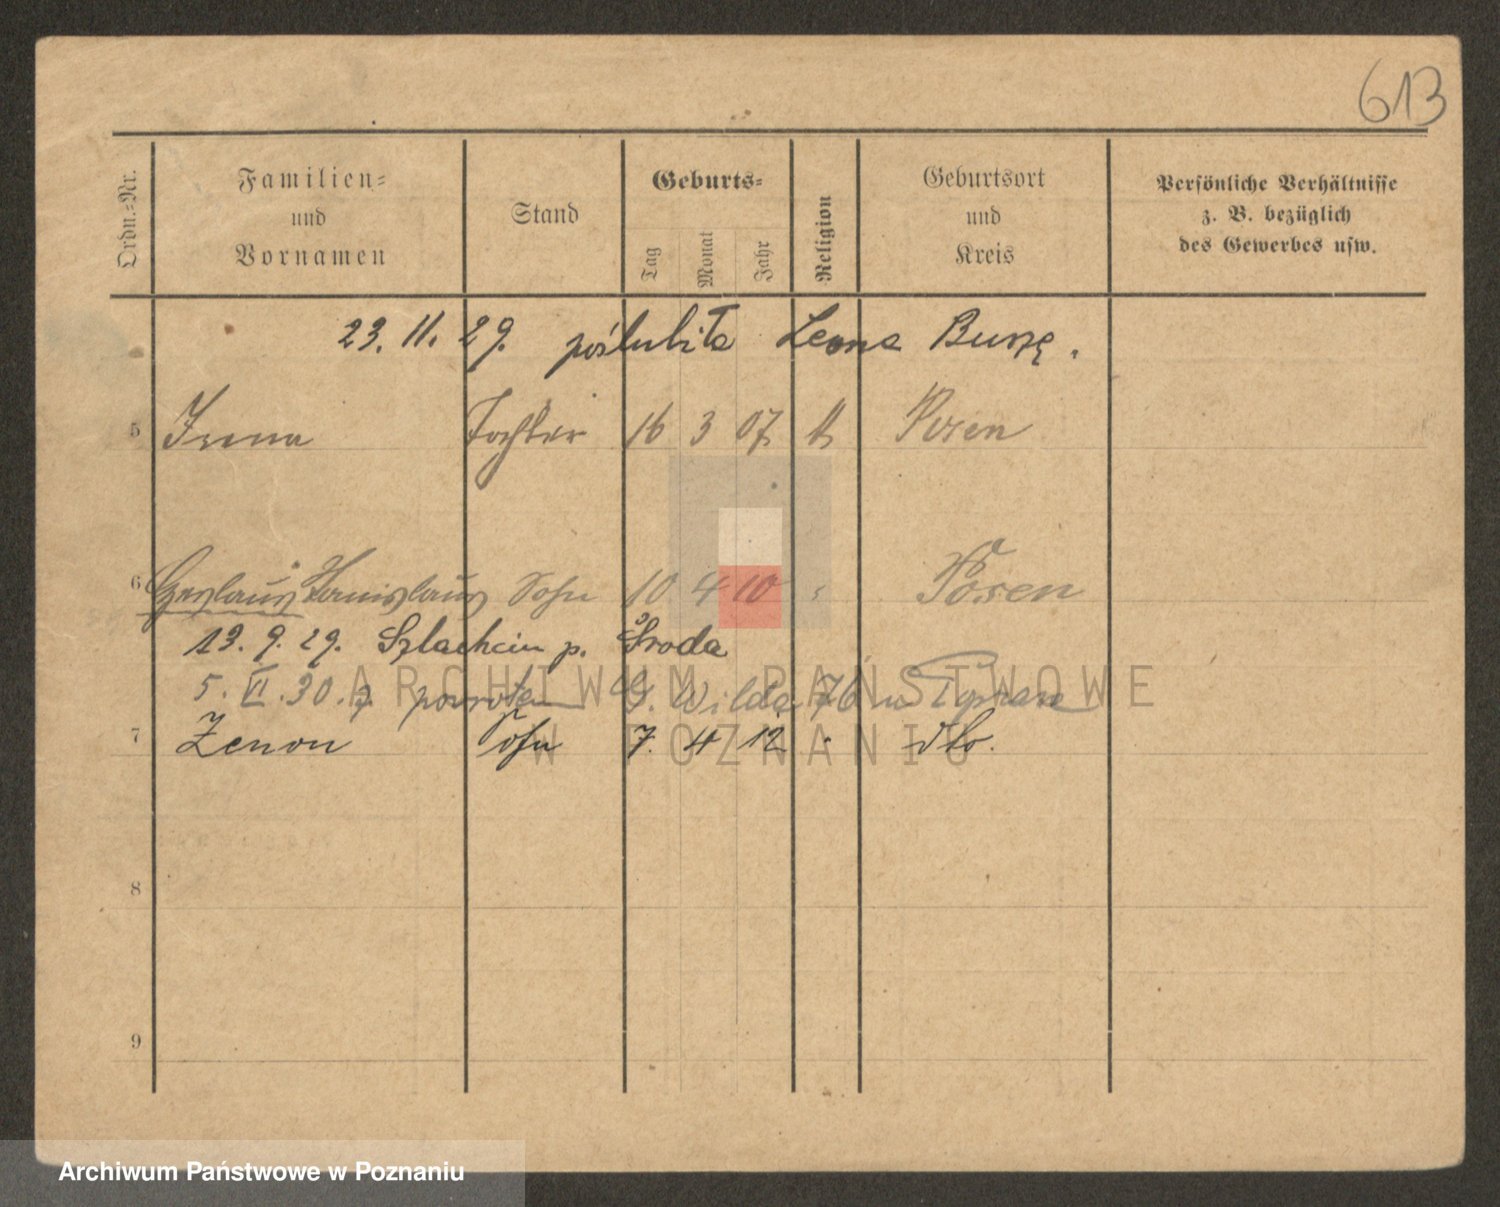 613
Ordn.-Nr. Familien- und Vornamen Stand Geburts- Tag Monat Jahr Religion Geburtsort und Kreis Persönliche Verhältnisse z. B. bezüglich des Gewerbes usw.
23. 11. 29. poślubiła Leona Buszę.
5 Irena Tochter 16 3 07 k Posen
6 Czeslaus Stanislaus Sohn 10 4 10 " Posen
13. 9. 29. Szlachcin p. Środa
5. VI. 30. z powrotem G. Wilda 76 u
7 Zenon Sohn 7. 4 12 " dto.
8
9
ARCHIWUM PAŃSTWOWE
W POZNANIU
Archiwum Państwowe w Poznaniu